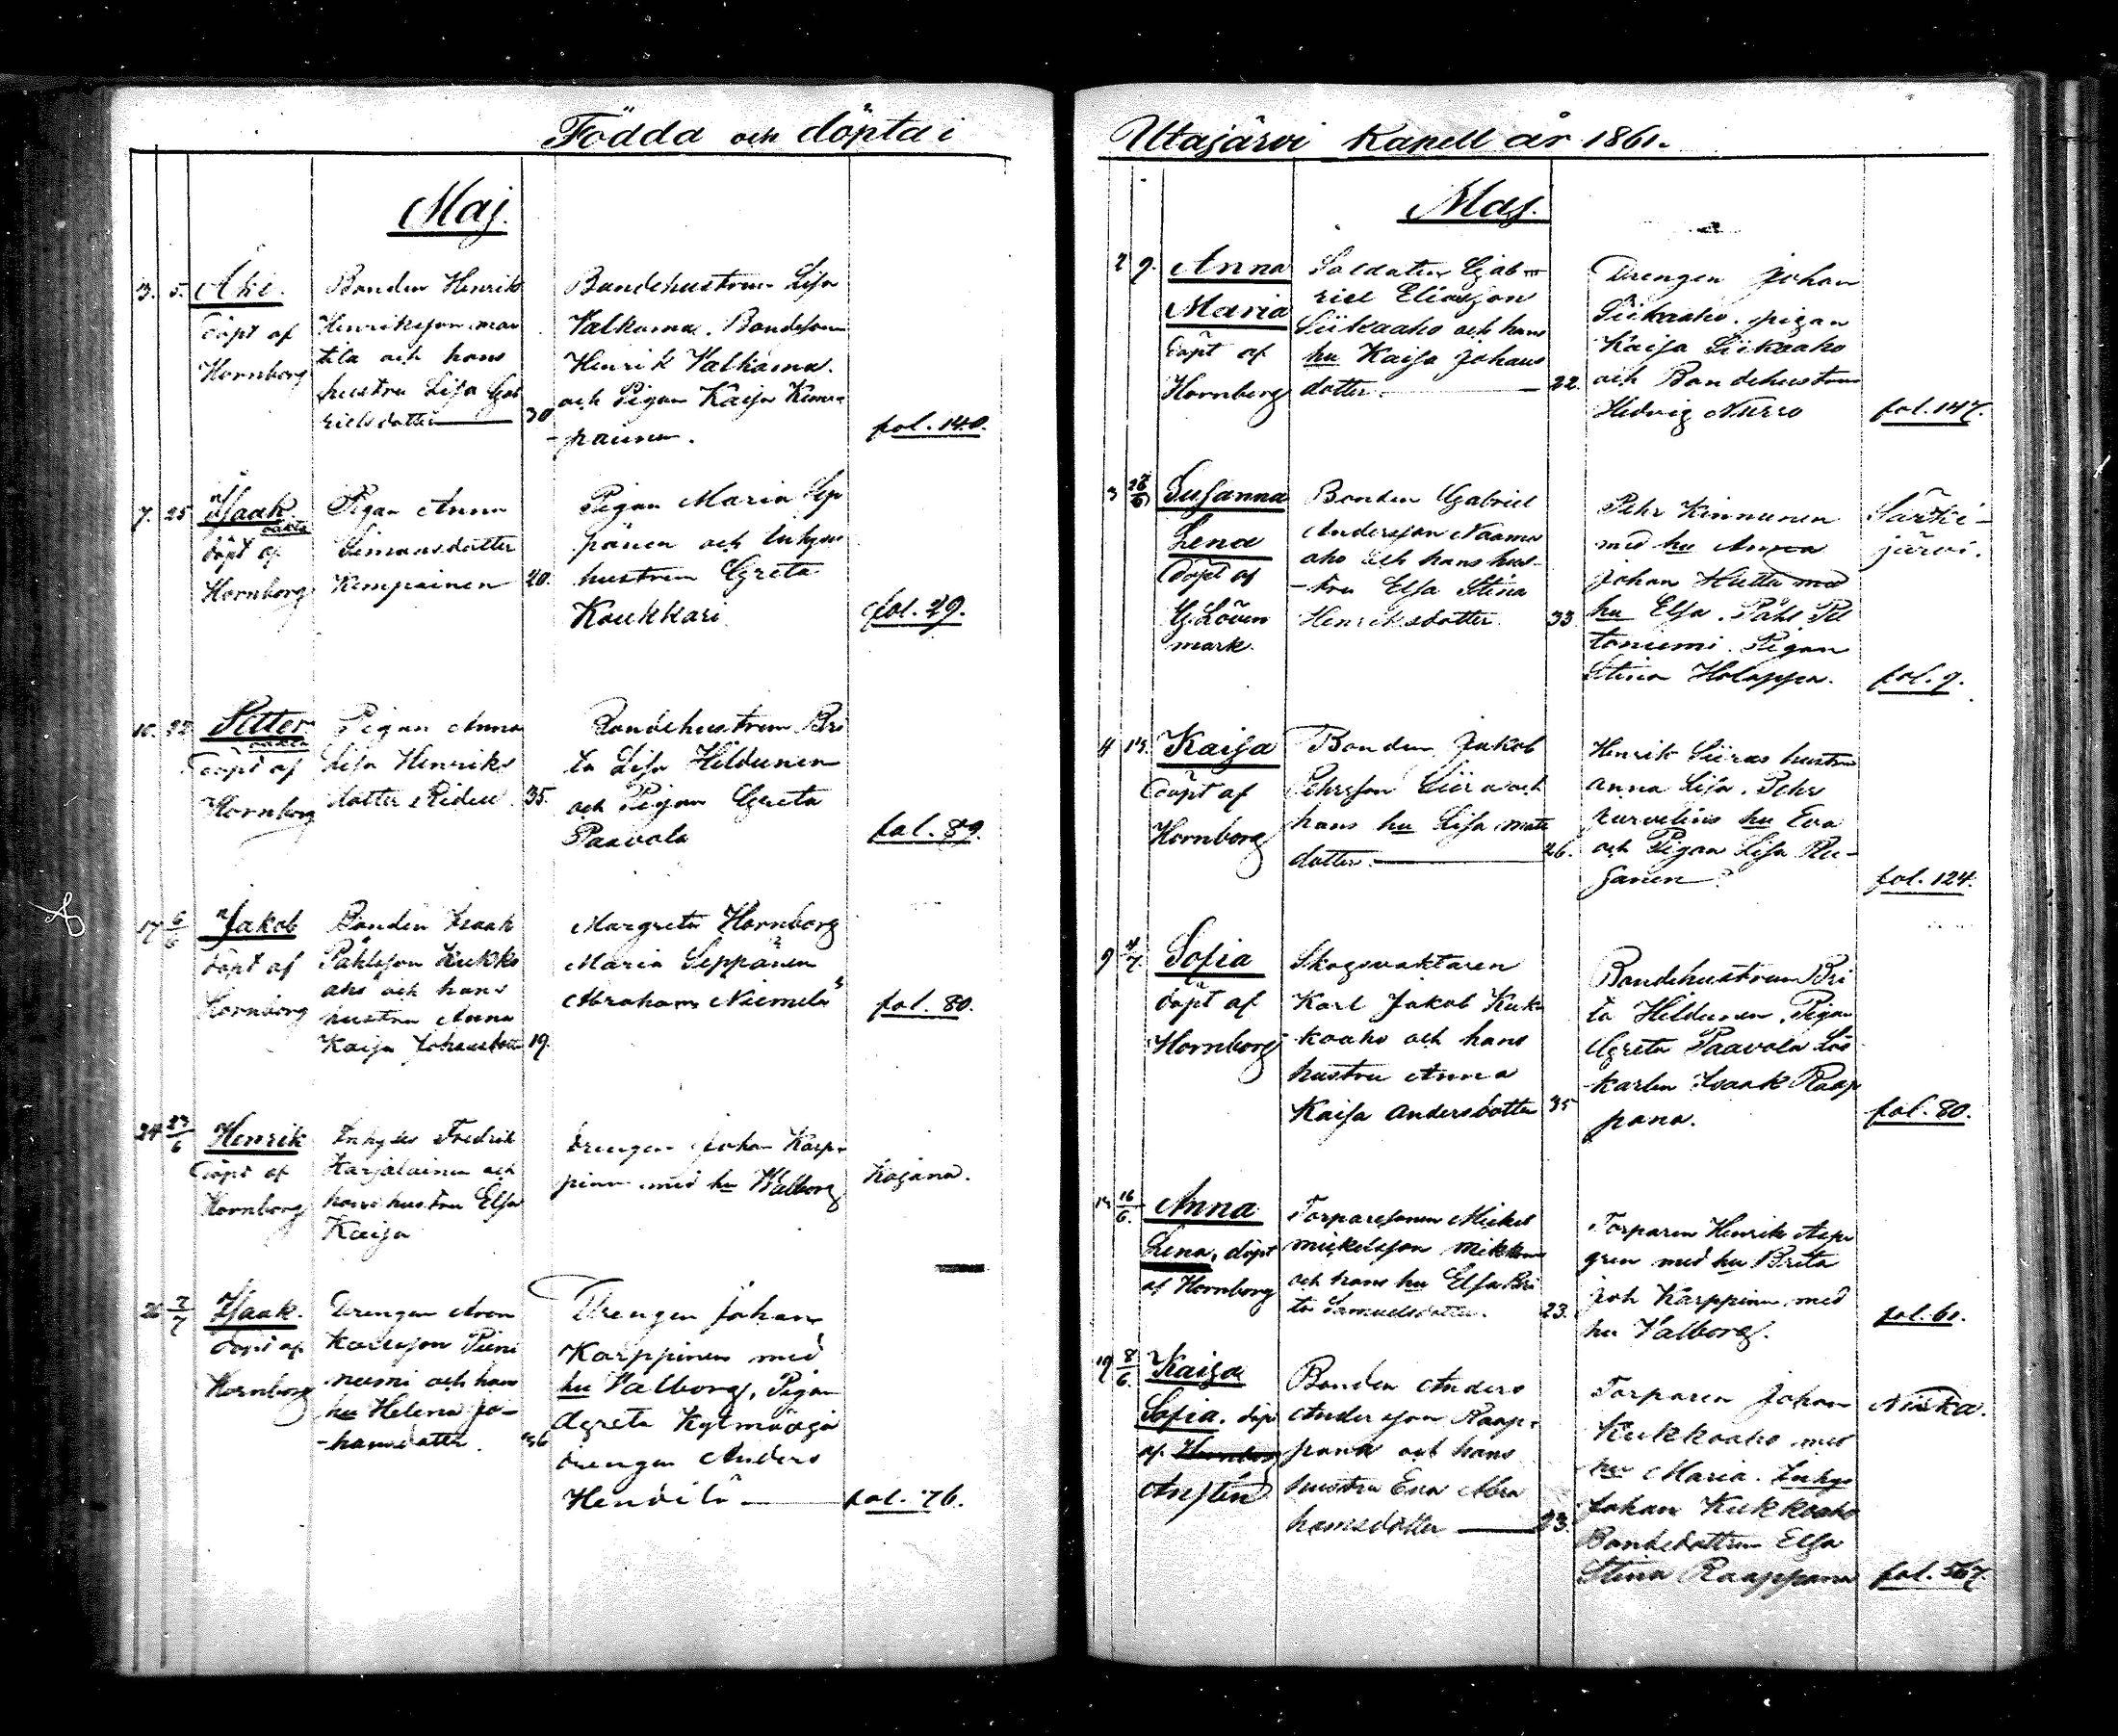 Födda och döpta i
Maj.
3. 5. Åke.
döpt af
Hornborg
Bonden Henrik
Henriksson
tila och hans
hustru Lisa Gab
rielsdotter 30
Bondehustrun Lisa
Valkama. Bondeson
Henrik Valkama.
och Pigan Kaisa Kem
painen.
fol. 140.
7. 25 Isaak
oäkta
döpt af
Hornborg
Pigan Anna
Simonsdotter
Kempainen 20.
Pigan Maria Sep
pänen och Inhyses
hustrun Greta
Koukkari
fol. 29.
Petter
oäkta
döpt af
Hornborg
Pigan Anna
Lisa Henriks
dotter 35.
Bondehustrun Bri
ta Lisa Hildunen
och Pigan Greta
Paavola
fol. 89.
17 6/6 Jakob
döpt af
Hornborg
Bonden Isaak
Påhlsson Kukko
aho och hans
hustru Anna
Kaisa Johansdott 19.
Margreta Hornborg
Maria Seppänen
Abraham Niemelä
fol. 80.
24 23/6 Henrik
döpt af
Hornborg
Inhyses Fredrik
Karjalainen och
hans hustru Elsa
Kaisa
drengen Johan Karp-
pinen med hu Walborg
Kajana.
26 7/7 Isaak.
döpt af
Hornborg
Drengen Aron
Karlsson Pieni
niemi och hans
hu Helena Jo-
hansdotter. 36
Drengen Johan
Karppinen med
hu Valborg, Pigan
Greta Kylmäoja
drengen Anders
Hendilä
fol. 76.
Utajärvi Kapell år 1861.
Maj.
2 9. Anna
Maria
döpt af
Hornborg
Soldaten Gab
riel Eliasson
Siikaaho och hans
hu Kaisa Johans
dotter 22.
Drengen Johan
Siikaaho. pigan
Kaisa Siikaaho
och Bondehustrun
Hedvig Nurro
fol. 147.
3 28/6 Susanna
Lena
döpt af
G. Löven
mark.
Bonden Gabriel
Andersson Naama
aho och hans hus-
tru Elsa Stina
Henriksdotter 33
Pehr Kinnunen
med hu Anna
Johan Huttu med
hu Elsa. Påhl Pel
toniemi. Pigan
Stina Holappa.
Särki-
järvi.
fol. 9.
4 14. Kaisa
döpt af
Hornborg
Bonden Jakob
Pehrsson Siira och
hans hu Lisa Mats
dotter. 26.
Henrik Siiras hustru
Anna Lisa. Pehr
Juvelius hu Eva
och Pigan Lisa Ru-
sanen
fol. 124.
9 4/7 Sofia
döpt af
Hornborg
Skogsvaktaren
Karl Jakob Kuk
koaho och hans
hustru Anna
Kaisa Andersdotter 35
Bondehustrun Bri
ta Hildunen. Pigan
Greta Paavola Lös
karlen Isaak Raap
pana.
fol. 80.
14 16/6. Anna
Lena, döpt
af Hornborg
Torparesonen Mickel
Mickelsson Mikkonen
och hans hu Elsa Bri
ta Samuelsdotter. 23.
Torparen Henrik Asp
gren med hu Brita
Joh Karppinen med
hu Valborg.
fol. 61.
19 8/6. Kaisa
Sofia. döpt
af Hornborg
Anstén
Bonden Anders
Andersson Raap-
pana och hans
hustru Eva Abra
hamsdotter 23.
Torparen Johan
Kukkoaho med
hu Maria. Inhys
Johan Kukkoaho
Bondedottren Elsa
Stina Raappana
Niska.
fol. 567.